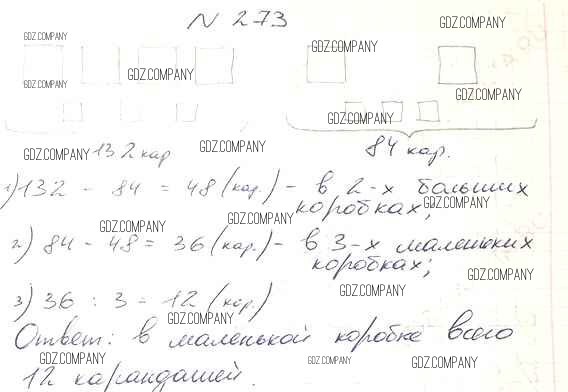 N 273
GDZ.COMPANY
GDZ.COMPANY
GDZ.COMPANY
GDZ.COMPANY
GDZ.COMPANY
GDZ.COMPANY
GDZ.COMPANY
GDZ.COMPANY 132 кар GDZ.COMPANY 84 кар.
1) 132 - 84 = 48 (кар.) - в 2-х больших
коробках; GDZ.COMPANY
GDZ.COMPANY GDZ.COMPANY
2) 84 - 48 = 36 (кар.) - в 3-х маленьких
коробках;
GDZ.COMPANY
3) 36 : 3 = 12 (кар.) GDZ.COMPANY
GDZ.COMPANY
Ответ: в маленькой коробке всего
GDZ.COMPANY GDZ.COMPANY GDZ.COMPANY
12 карандашей.